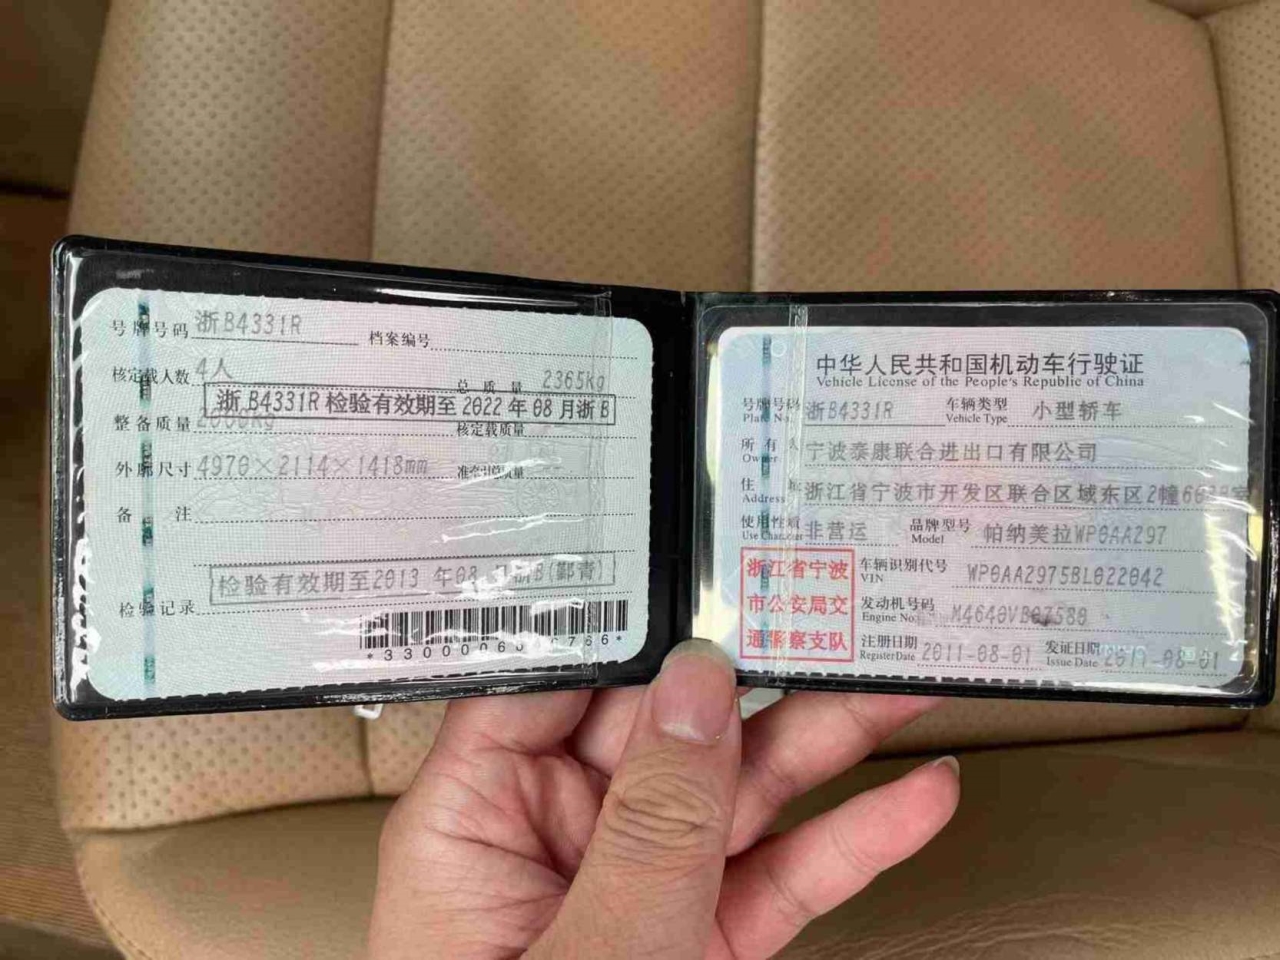 号牌号码 浙B4331R 档案编号
核定载人数 4人 总质量 2365Kg
浙B4331R检验有效期至2022年08月浙B
整备质量 核定载质量
外廓尺寸 4970×2114×1418mm 准牵引总质量
备注
检验有效期至2013年08 浙B(鄞青)
检验记录
中华人民共和国机动车行驶证
Vehicle License of the People's Republic of China
号牌号码 浙B4331R 车辆类型 小型轿车
Plate No. Vehicle Type
所有人 宁波泰康联合进出口有限公司
Owner
住址 浙江省宁波市开发区联合区域东区2幢
Address
使用性质 非营运 品牌型号 帕纳美拉WP0AA297
Use Character Model
浙江省宁波
市公安局交
通警察支队
车辆识别代号 WP0AA2975BL022042
VIN
发动机号码
Engine No.
注册日期 2011-08-01 发证日期 2011-08-01
Register Date Issue Date